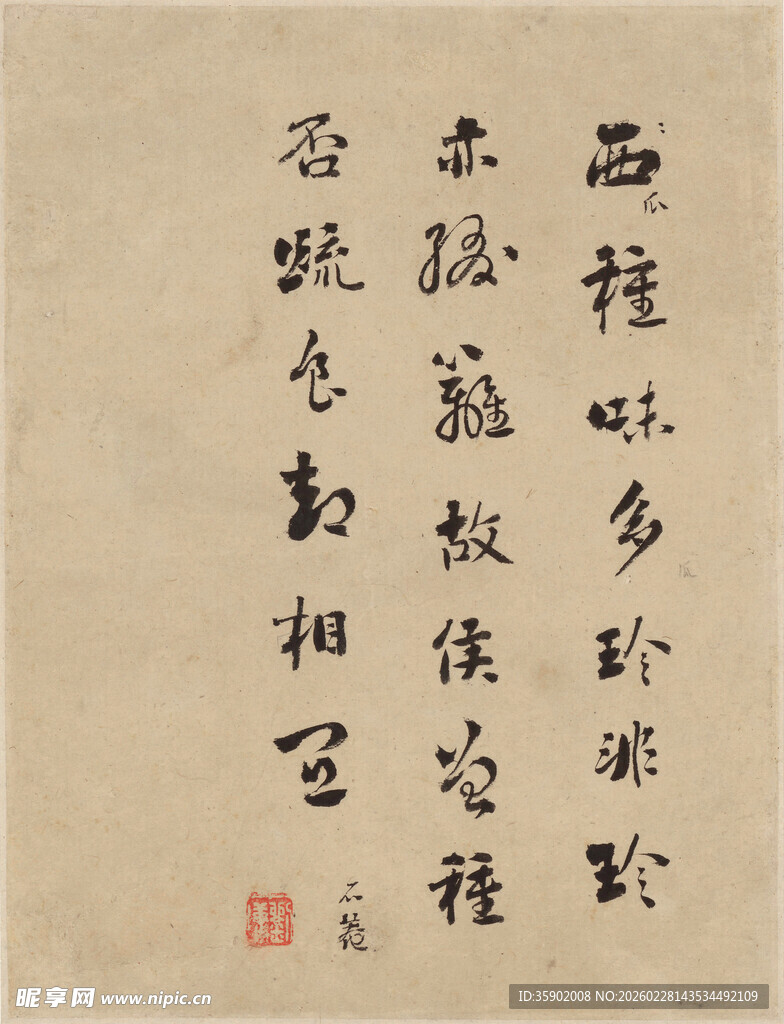 西瓜種味多珍非珍
瓜
亦綴籬故侯曾種
否疏食却相宜
石菴
昵享网 www.nipic.cn
ID:35902008 NO:20260228143534492109